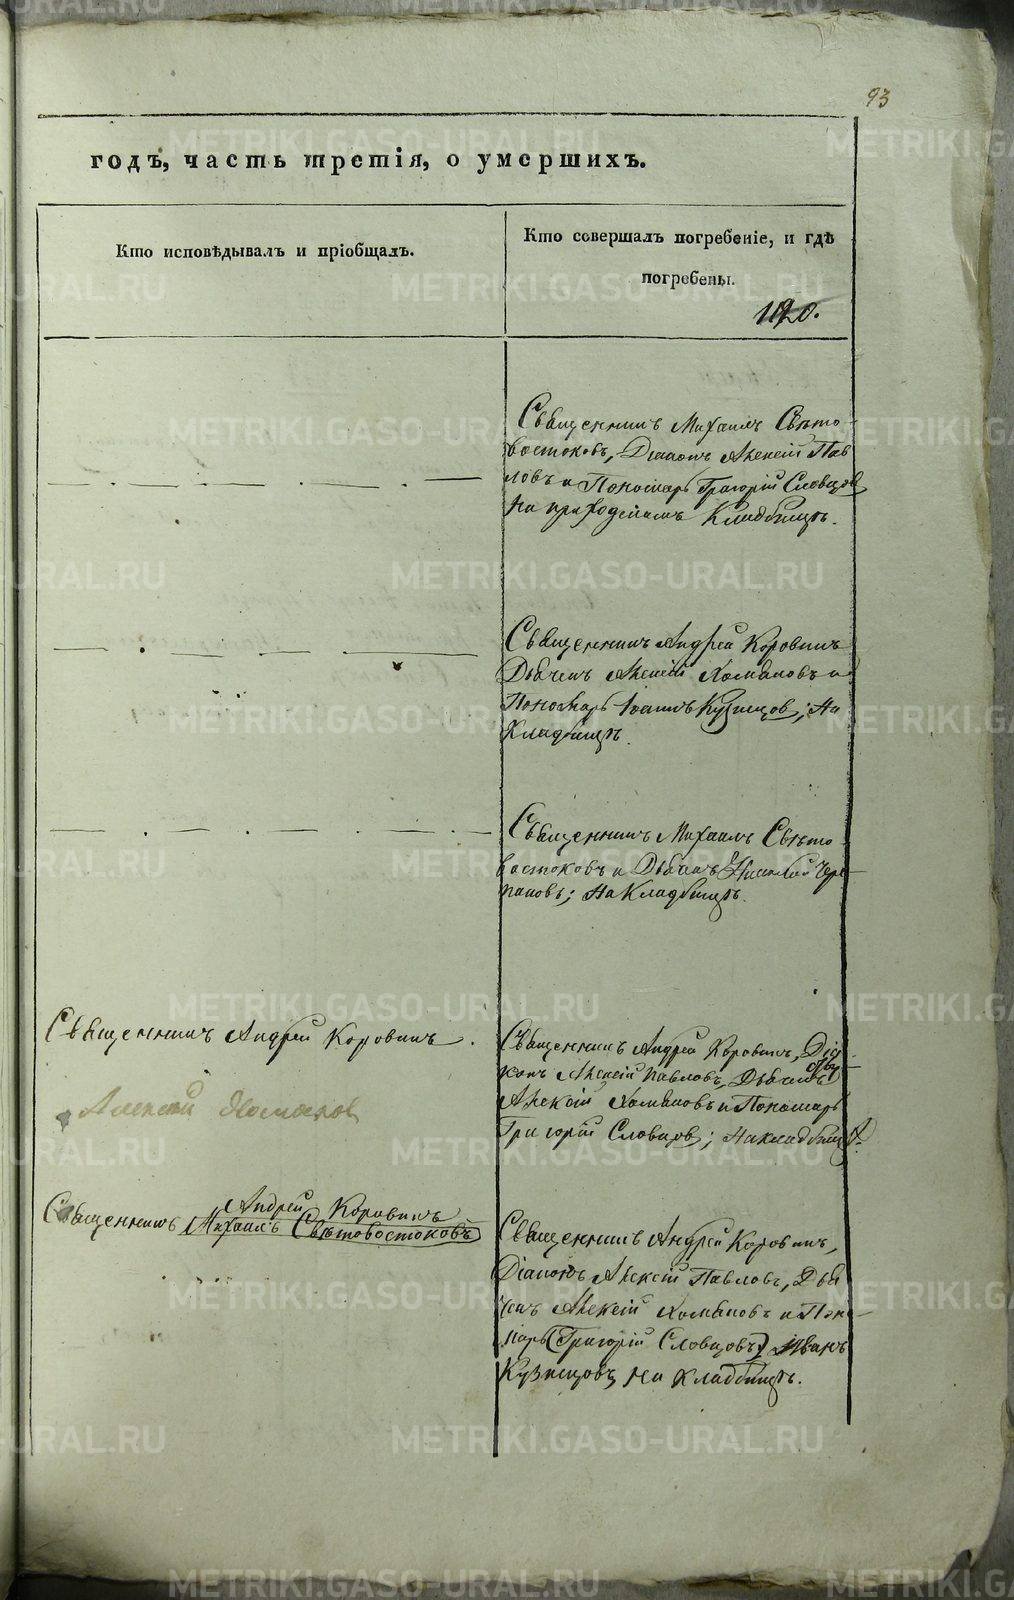 93
годъ, часть третія, о умершихъ.
Кто исповѣдывалъ и пріобщалъ.
Кто совершалъ погребеніе, и гдѣ
погребены.
Священникъ Михаилъ Свѣто-
востоковъ, Діаконъ Алексій Пав
ловъ и Пономарь Григорій Словцов
На приходскомъ Кладбищѣ.
Священникъ Андрей Коровинъ
Дьячекъ Алексій Хомяковъ и
Пономарь Іоаннъ Кузнецов; На
Кладбищѣ.
Священникъ Михаилъ Свѣто
востоковъ и Дьячекъ Николай Чере-
пановъ; На Кладбищѣ.
Священникъ Андрей Коровинъ.
Священникъ Андрей Коровинъ, Діа-
конъ Алексій Павловъ, Дьячекъ
Алексій Хомяковъ и Пономарь
Григорій Словцов; На кладбищѣ.
Андрей Коровинъ
Священникъ Михаилъ Свѣтовостоковъ
Священникъ Андрей Коровинъ,
Діаконъ Алексій Павловъ, Дья
чекъ Алексій Хомяковъ и Поно-
марь (Григорій Словцовъ) Иванъ
Кузнецовъ, На кладбищѣ.
METRIKI.GASO-URAL.RU